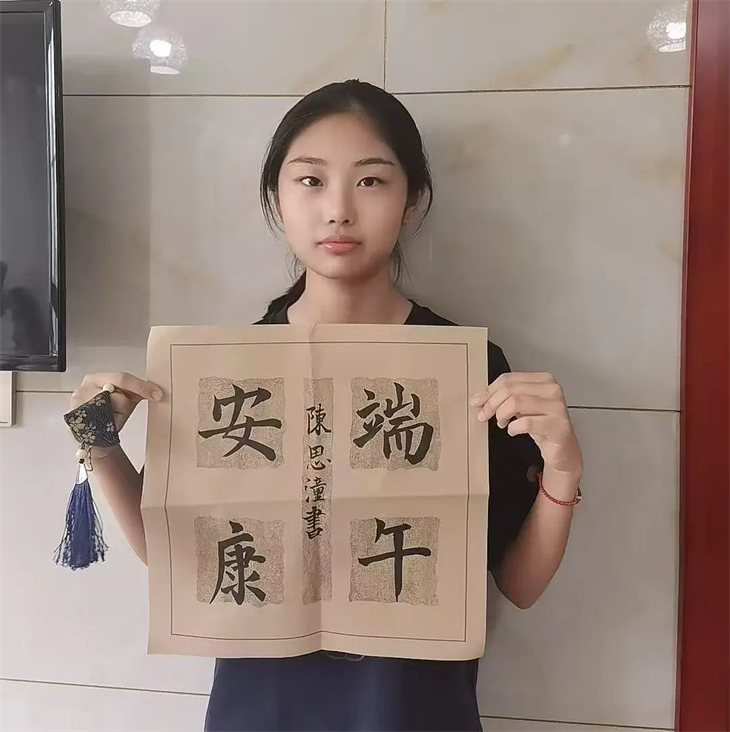 端午
安康
陳思潼書